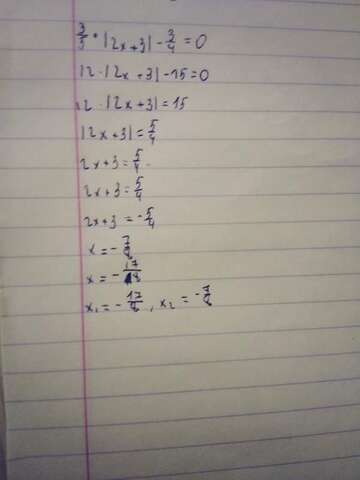 3/5 · |2x+3| - 3/4 = 0
12 · |2x+3| - 15 = 0
12 · |2x+3| = 15
|2x+3| = 5/4
2x+3 = 5/4
2x+3 = 5/4
2x+3 = -5/4
x = -7/8
x = -17/8
x₁ = -17/8, x₂ = -7/8